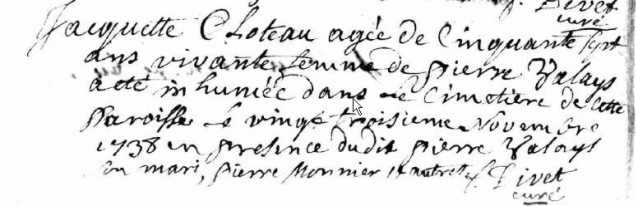 Pivet
curé
Jacquette Cloteau agée de Cinquante sept
ans vivante femme de pierre Valays
a eté inhumée dans le Cimetiere de cette
Paroisse le vingt troisieme Novembre
1738 en presence dudit pierre Valays
son mari, pierre Monnier et autres
Pivet
curé